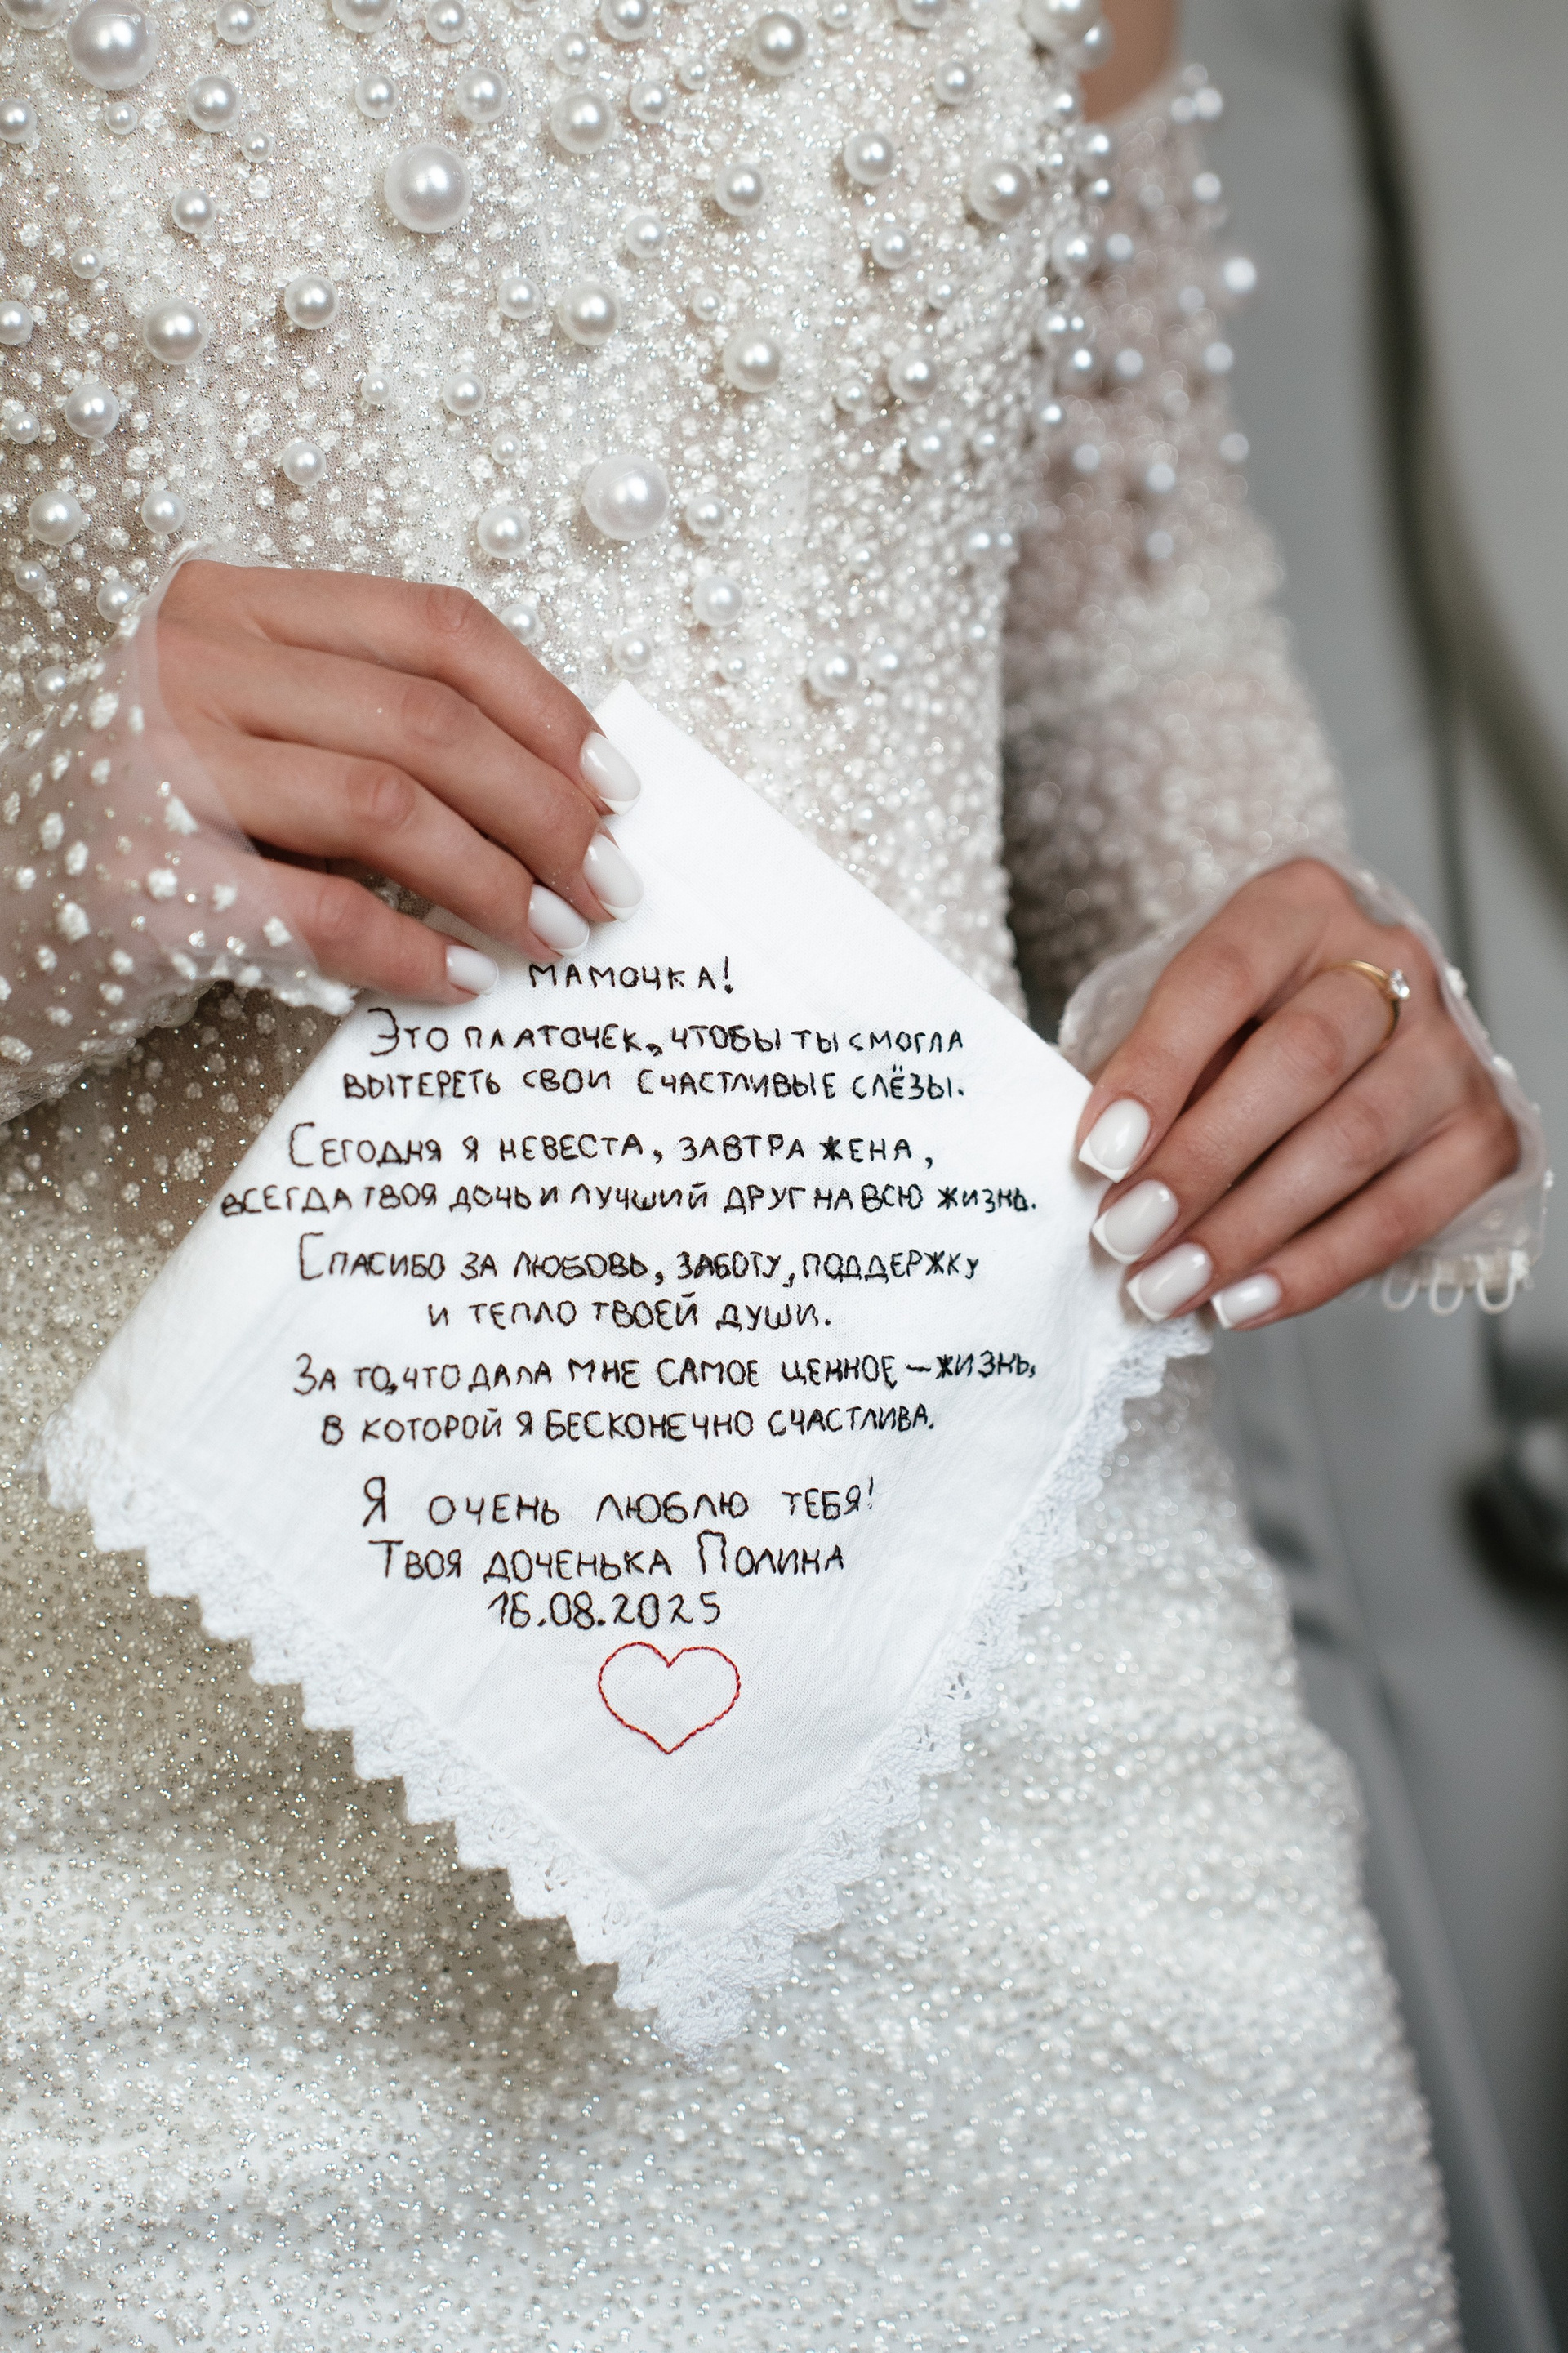 МАМОЧКА!
ЭТО ПЛАТОЧЕК, ЧТОБЫ ТЫ СМОГЛА
ВЫТЕРЕТЬ СВОИ СЧАСТЛИВЫЕ СЛЁЗЫ.
СЕГОДНЯ Я НЕВЕСТА, ЗАВТРА ЖЕНА,
ВСЕГДА ТВОЯ ДОЧЬ И ЛУЧШИЙ ДРУГ НА ВСЮ ЖИЗНЬ.
СПАСИБО ЗА ЛЮБОВЬ, ЗАБОТУ, ПОДДЕРЖКУ
И ТЕПЛО ТВОЕЙ ДУШИ.
ЗА ТО, ЧТО ДАЛА МНЕ САМОЕ ЦЕННОЕ – ЖИЗНЬ,
В КОТОРОЙ Я БЕСКОНЕЧНО СЧАСТЛИВА.
Я ОЧЕНЬ ЛЮБЛЮ ТЕБЯ!
ТВОЯ ДОЧЕНЬКА ПОЛИНА
16.08.2025